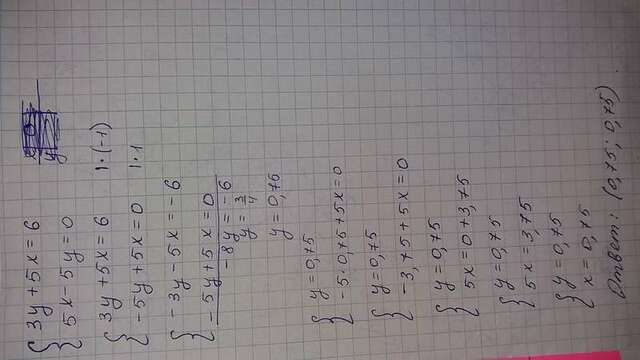 { 3y + 5x = 6
{ 5x - 5y = 0
{ 3y + 5x = 6 | · (-1)
{ -5y + 5x = 0 | · 1
{ -3y - 5x = -6
{ -5y + 5x = 0
-8y = -6
y = 3/4
y = 0,75
{ y = 0,75
{ -5 · 0,75 + 5x = 0
{ y = 0,75
{ -3,75 + 5x = 0
{ y = 0,75
{ 5x = 0 + 3,75
{ y = 0,75
{ 5x = 3,75
{ y = 0,75
{ x = 0,75
Ответ: (0,75; 0,75).